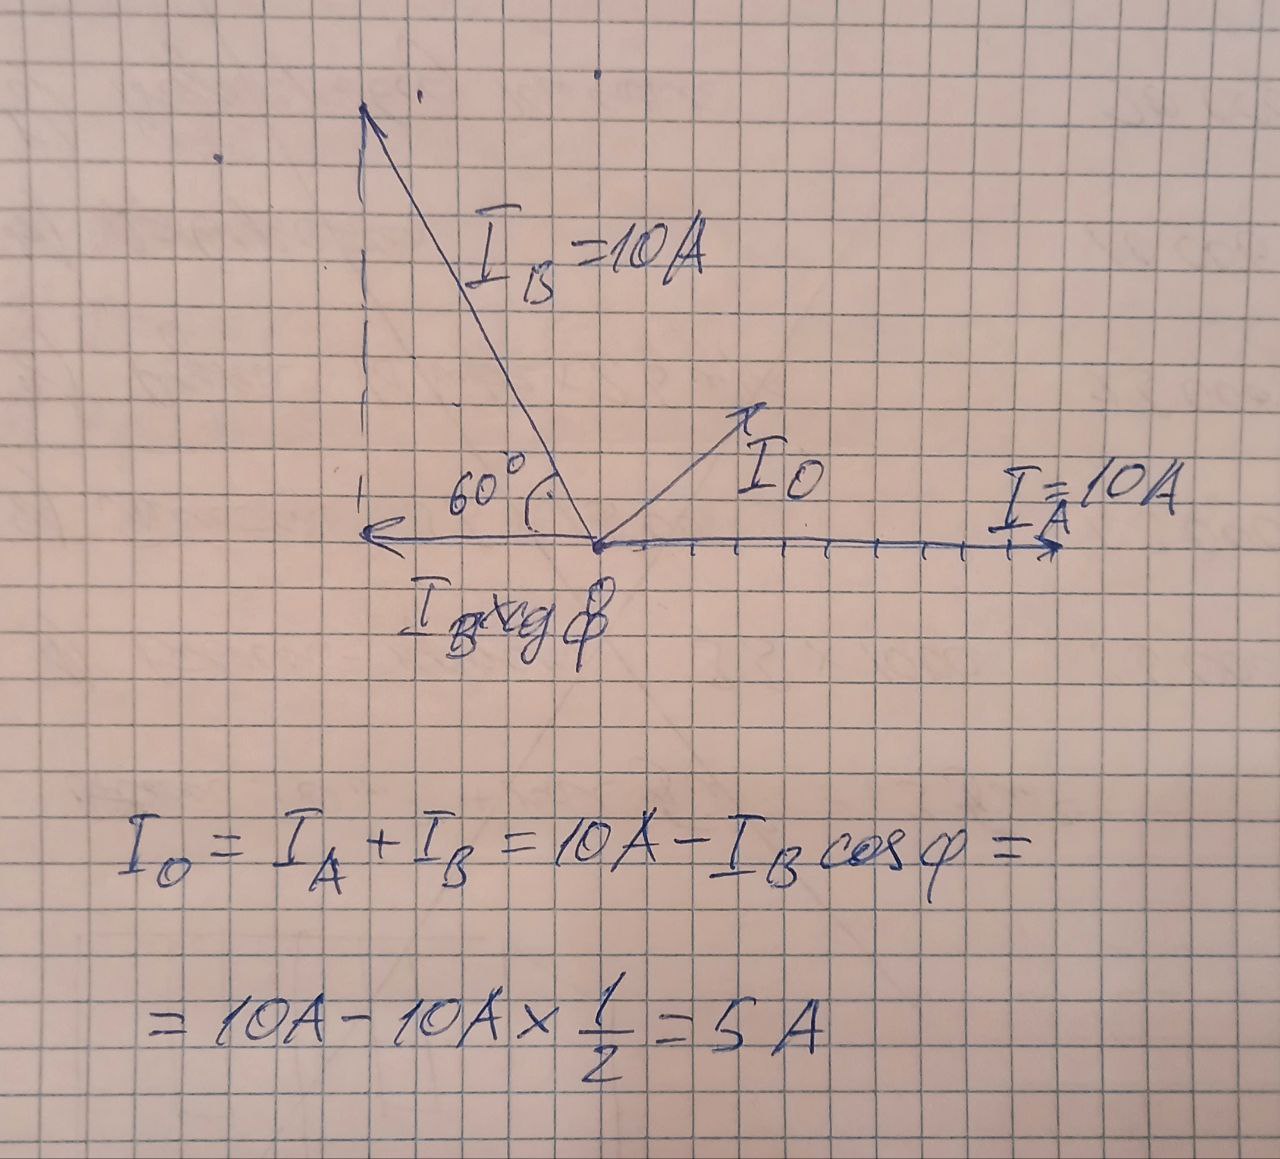 I_B = 10A
60°
I_O
I_A = 10A
I_B × cg φ
I_O = I_A + I_B = 10A - I_B cos φ =
= 10A - 10A × 1/2 = 5 A